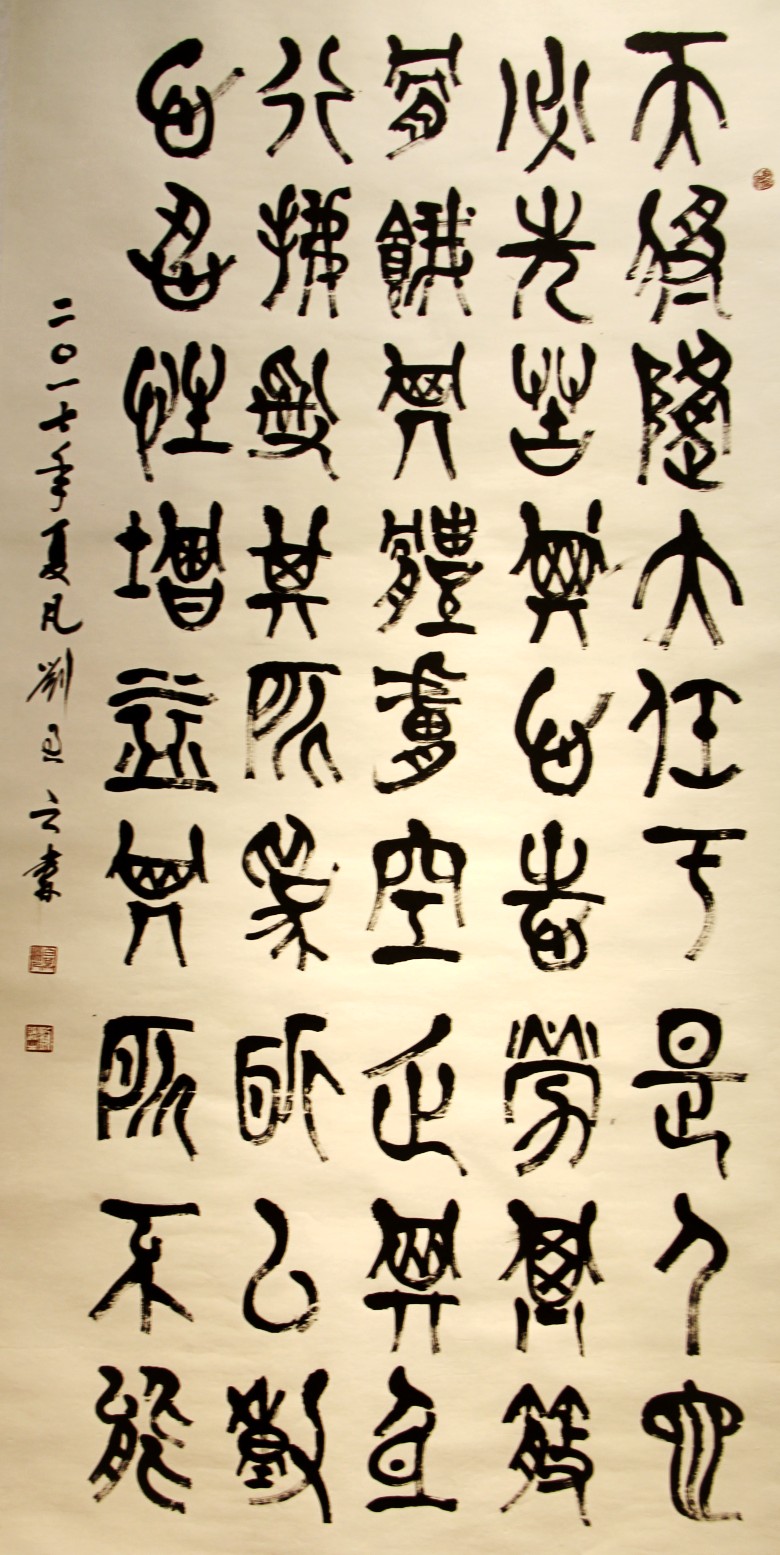 天將降大任于是人也
必先苦其心志勞其筋
骨餓其體膚空乏其身
行拂亂其所為所以動
心忍性增益其所不能
二〇一七年夏月劉書